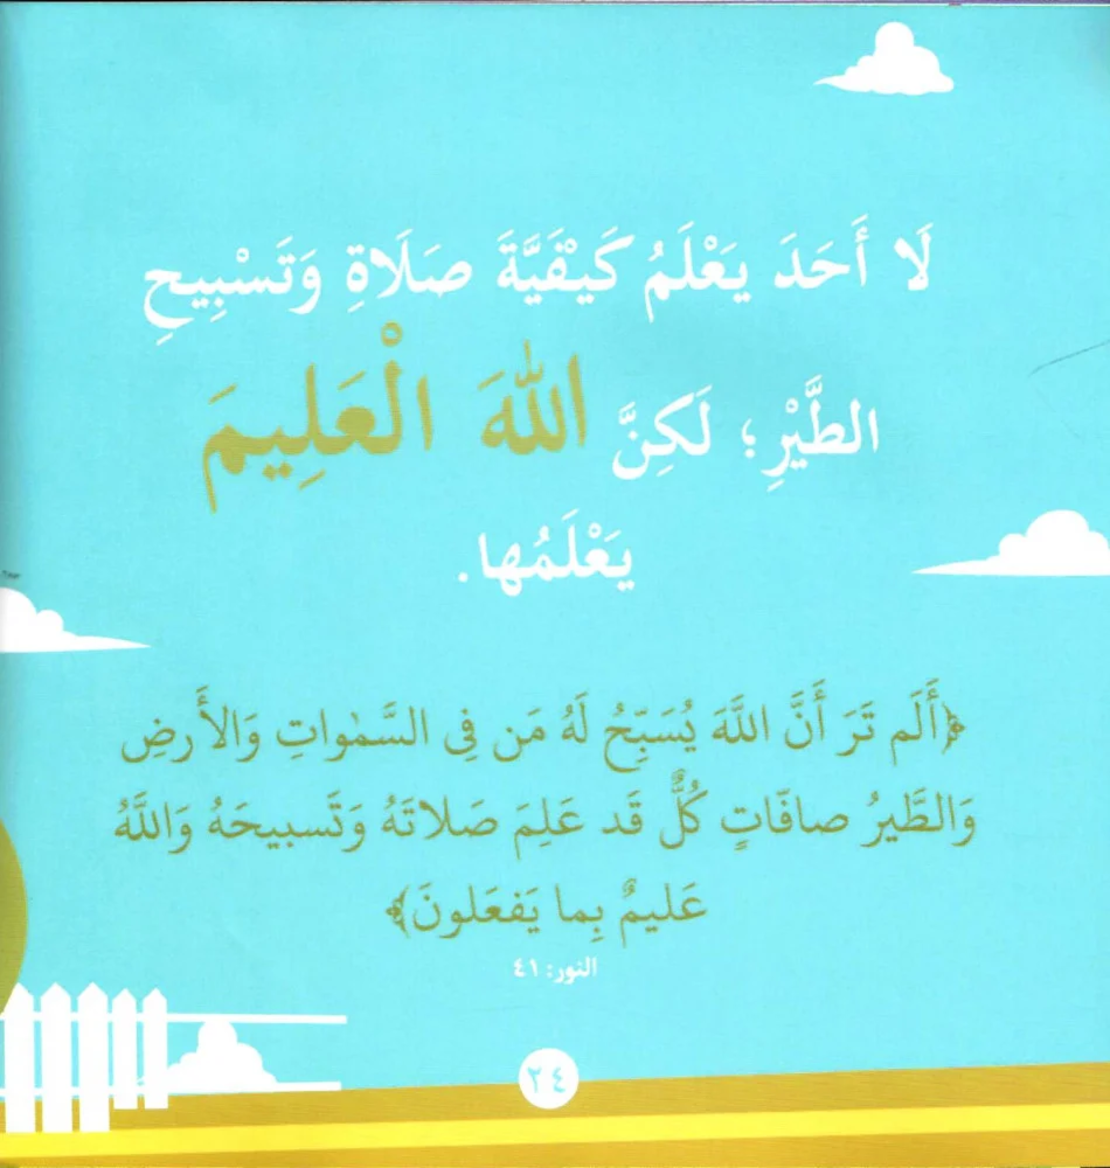 لَا أَحَدَ يَعْلَمُ كَيْفَيَّةَ صَلَاةِ وَتَسْبِيحِ
الطَّيْرِ؛ لَكِنَّ اللهَ الْعَلِيمَ
يَعْلَمُها.
﴿أَلَم تَرَ أَنَّ اللَّهَ يُسَبِّحُ لَهُ مَن فِي السَّمٰواتِ وَالأَرضِ
وَالطَّيرُ صافّاتٍ كُلٌّ قَد عَلِمَ صَلاتَهُ وَتَسبيحَهُ وَاللَّهُ
عَليمٌ بِما يَفعَلونَ﴾
النور: ٤١
٢٤